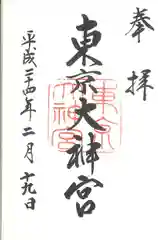 奉拝
東京大神宮
平成二十四年二月十九日
東京大神宮